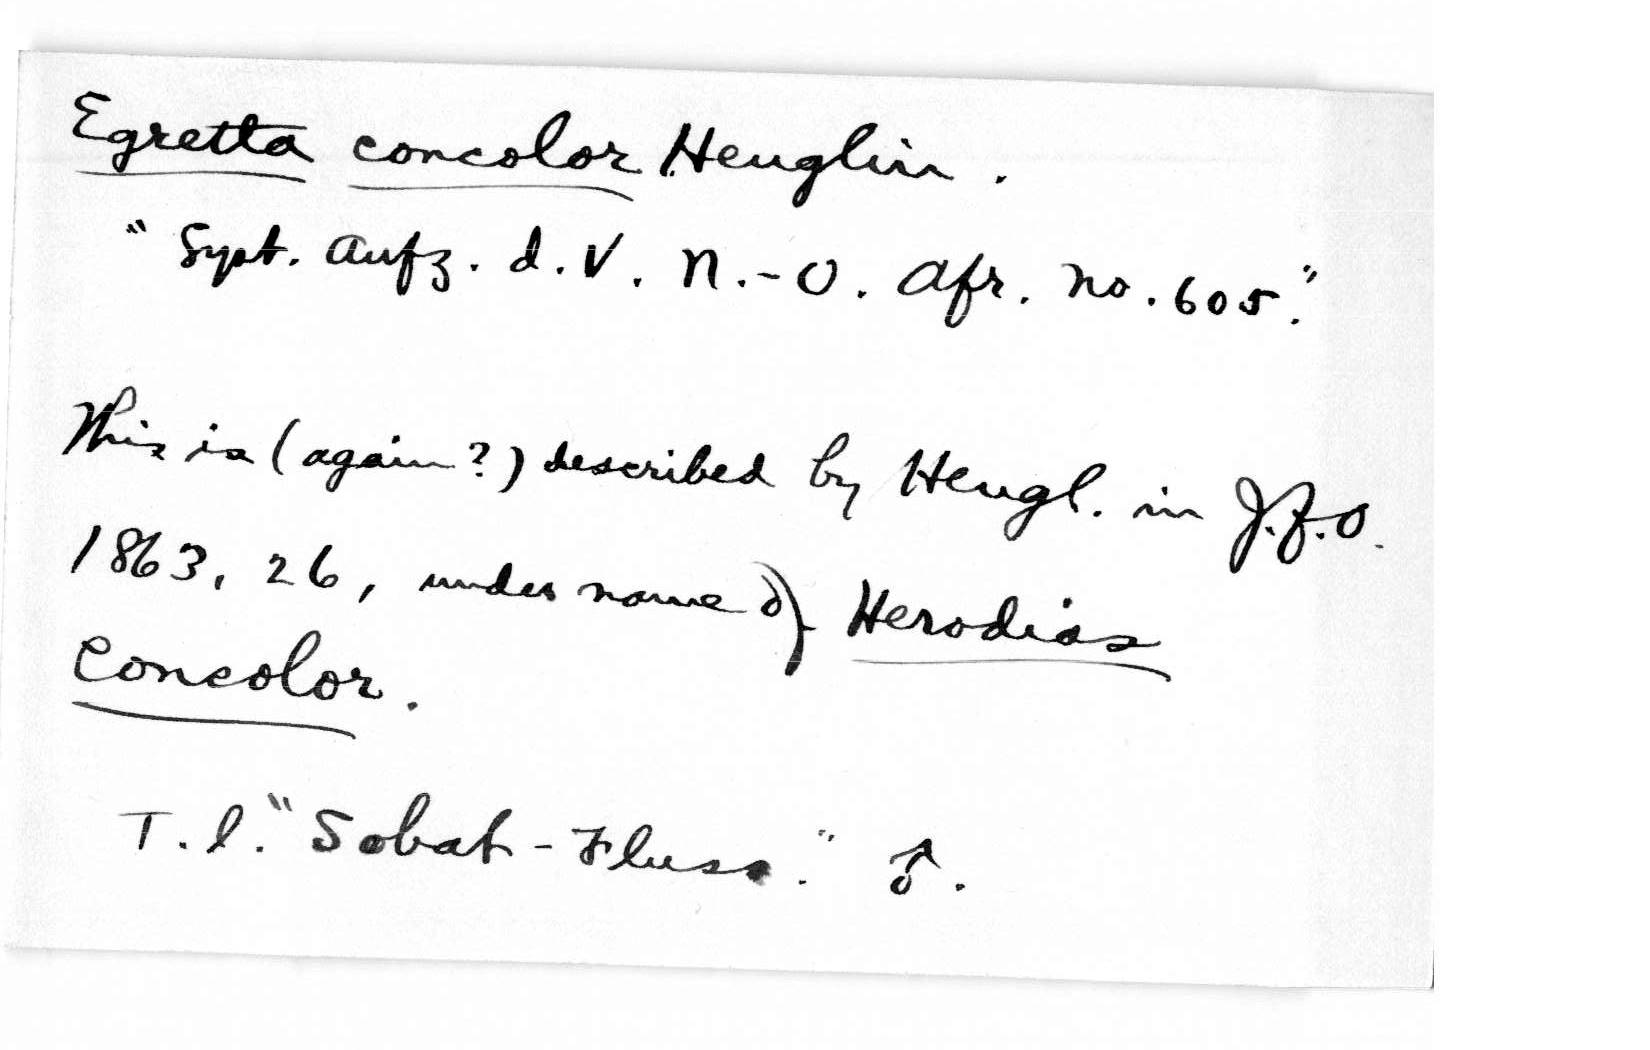 Egretta concolor Heuglin.
"Syst. Aufz. d. V. N.-O. Afr. No. 605."
This is (again?) described by Heugl. in J.f.O.
1863, 26, under name of Herodias
concolor.
T.l. "Sobat-Fluss." ♂.